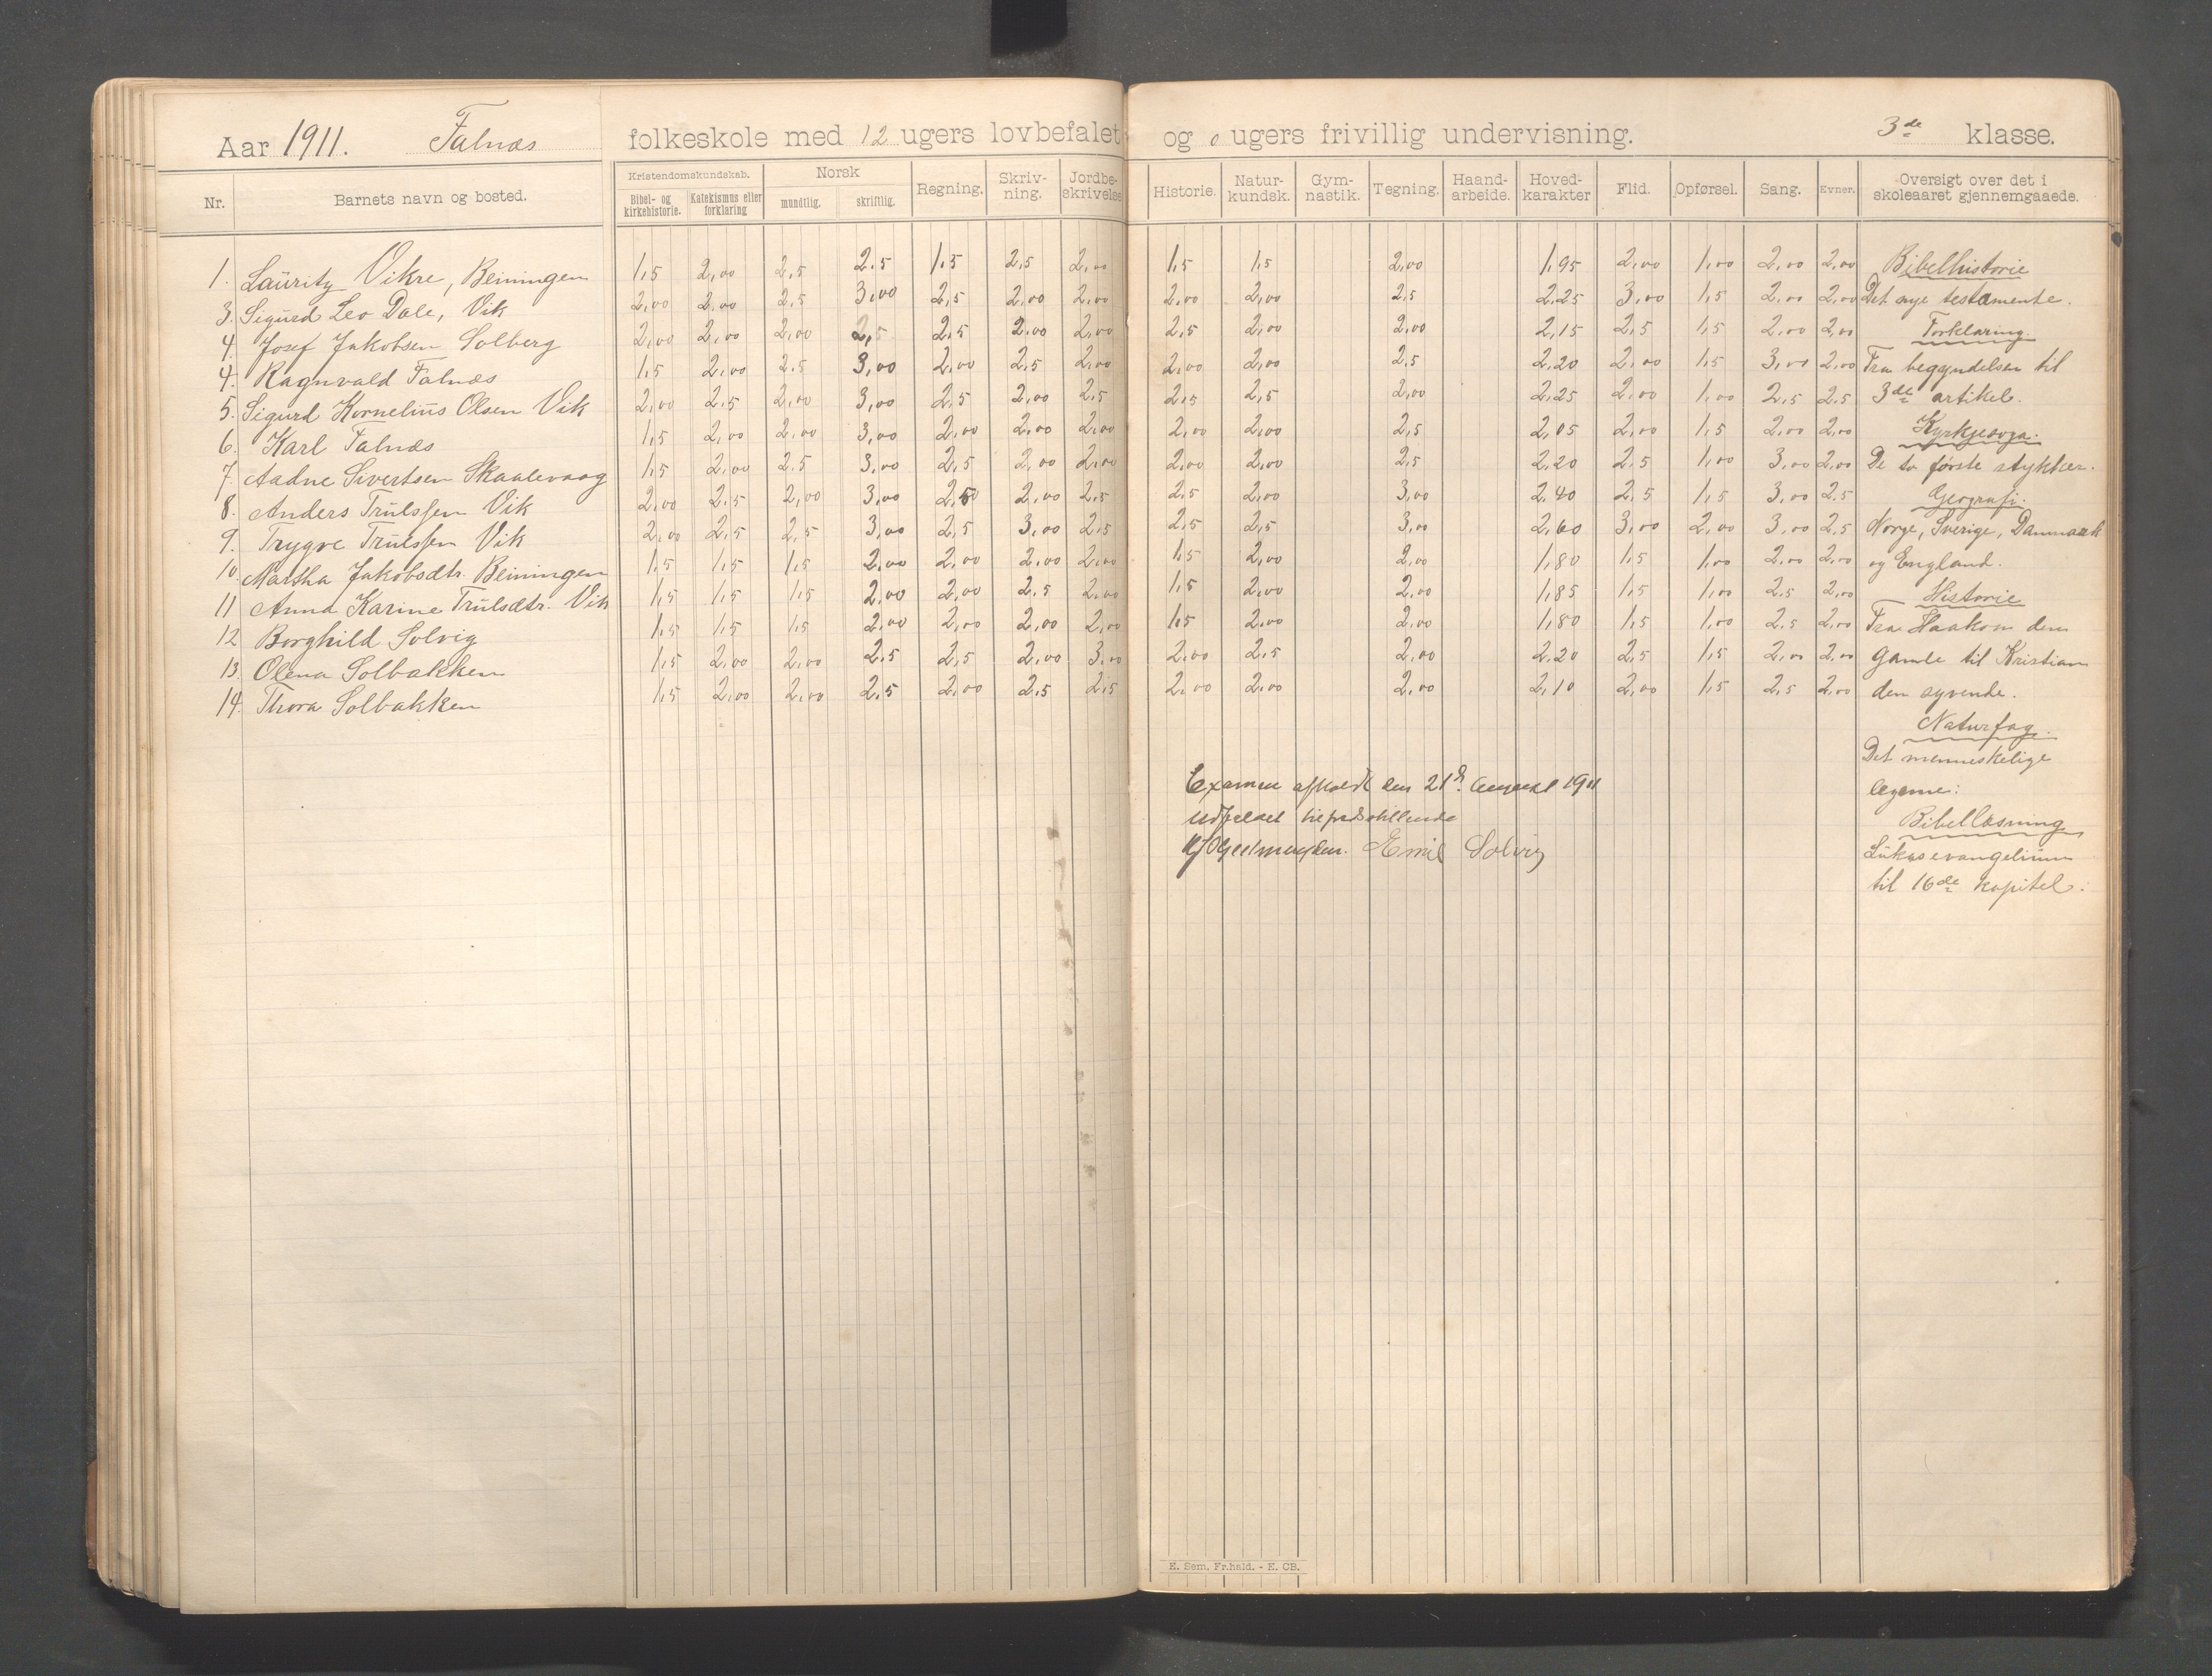 Aar 1911. Falnæs folkeskole med 12 ugers lovbefalet og 0 ugers frivillig undervisning. 3de klasse.
Nr. Barnets navn og bosted. Kristendomskundskab. Bibel- og kirkehistorie. Katekismus eller forklaring Norsk mundtlig. skriftlig. Regning. Skriv-ning. Jordbe-skrivelse Historie. Natur-kundsk. Gym-nastik. Tegning. Haand-arbeide. Hoved-karakter Flid. Opførsel. Sang. Evner. Oversigt over det i skoleaaret gjennemgaaede.
1. Lauritz Vikre, Beiningen 1,5 2,00 2,5 2,5 1,5 2,5 2,00 1,5 1,5 2,00 1,95 2,00 1,00 2,00 2,00 Bibelhistorie
3. Sigurd Leo Dale, Vik 2,00 2,00 2,5 3,00 2,5 2,00 2,00 2,00 2,00 2,5 2,25 3,00 1,5 2,00 2,00 Det nye testamente.
4. Josef Jakobsen Solberg 2,00 2,00 2,00 2,5 2,5 2,00 2,00 2,5 2,00 2,00 2,15 2,5 1,5 2,00 2,00 Forklaring.
4. Ragnvald Falnæs 1,5 2,00 2,5 3,00 2,00 2,5 2,00 2,00 2,00 2,5 2,20 2,00 1,5 3,00 2,00 Fra begyndelsen til
5. Sigurd Kornelius Olsen Vik 2,00 2,5 2,00 3,00 2,5 2,00 2,5 2,5 2,5 2,00 2,25 2,00 1,00 2,5 2,5 3de artikel.
6. Karl Falnæs 1,5 2,00 2,00 3,00 2,00 2,00 2,00 2,00 2,00 2,5 2,05 2,00 1,5 2,00 2,00 Kyrkjesoga.
7. Aadne Sivertsen Skaalevaag 1,5 2,00 2,5 3,00 2,5 2,00 2,00 2,00 2,00 2,5 2,20 2,5 1,00 3,00 2,00 De to første stykker.
8. Anders Trulssen Vik 2,00 2,5 2,00 3,00 2,5 2,00 2,5 2,5 2,00 3,00 2,40 2,5 1,5 3,00 2,5 Geografi.
9. Trygve Trulssen Vik 2,00 2,5 2,5 3,00 2,5 3,00 2,5 2,5 2,5 3,00 2,60 3,00 2,00 3,00 2,5 Norge, Sverige, Danmark
10. Martha Jakobsdtr. Beiningen 1,5 1,5 1,5 2,00 2,00 2,00 2,00 1,5 2,00 2,00 1,80 1,5 1,00 2,00 2,00 og England.
11 Anna Karine Trulsdtr. Vik 1,5 1,5 1,5 2,00 2,00 2,5 2,00 1,5 2,00 2,00 1,85 1,5 1,00 2,5 2,00 Historie
12 Borghild Solvig 1,5 1,5 1,5 2,00 2,00 2,00 2,00 1,5 2,00 2,00 1,80 1,5 1,00 2,5 2,00 Fra Haakon den
13. Olena Solbakken 1,5 2,00 2,00 2,5 2,5 2,00 3,00 2,00 2,5 2,00 2,20 2,5 1,5 2,00 2,00 gamle til Kristian
14. Thora Solbakken 1,5 2,00 2,00 2,5 2,00 2,5 2,5 2,00 2,00 2,00 2,10 2,00 1,5 2,5 2,00 den syvende.
Naturfag.
Det menneskelige
legeme:
Bibellæsning
Lukasevangelium
til 16de kapitel.
Examen afholdt den 21d August 1911
udfaldet tilfredsstillende
Emil Solvig
E. Sem. Fr.hald. - E. CB.